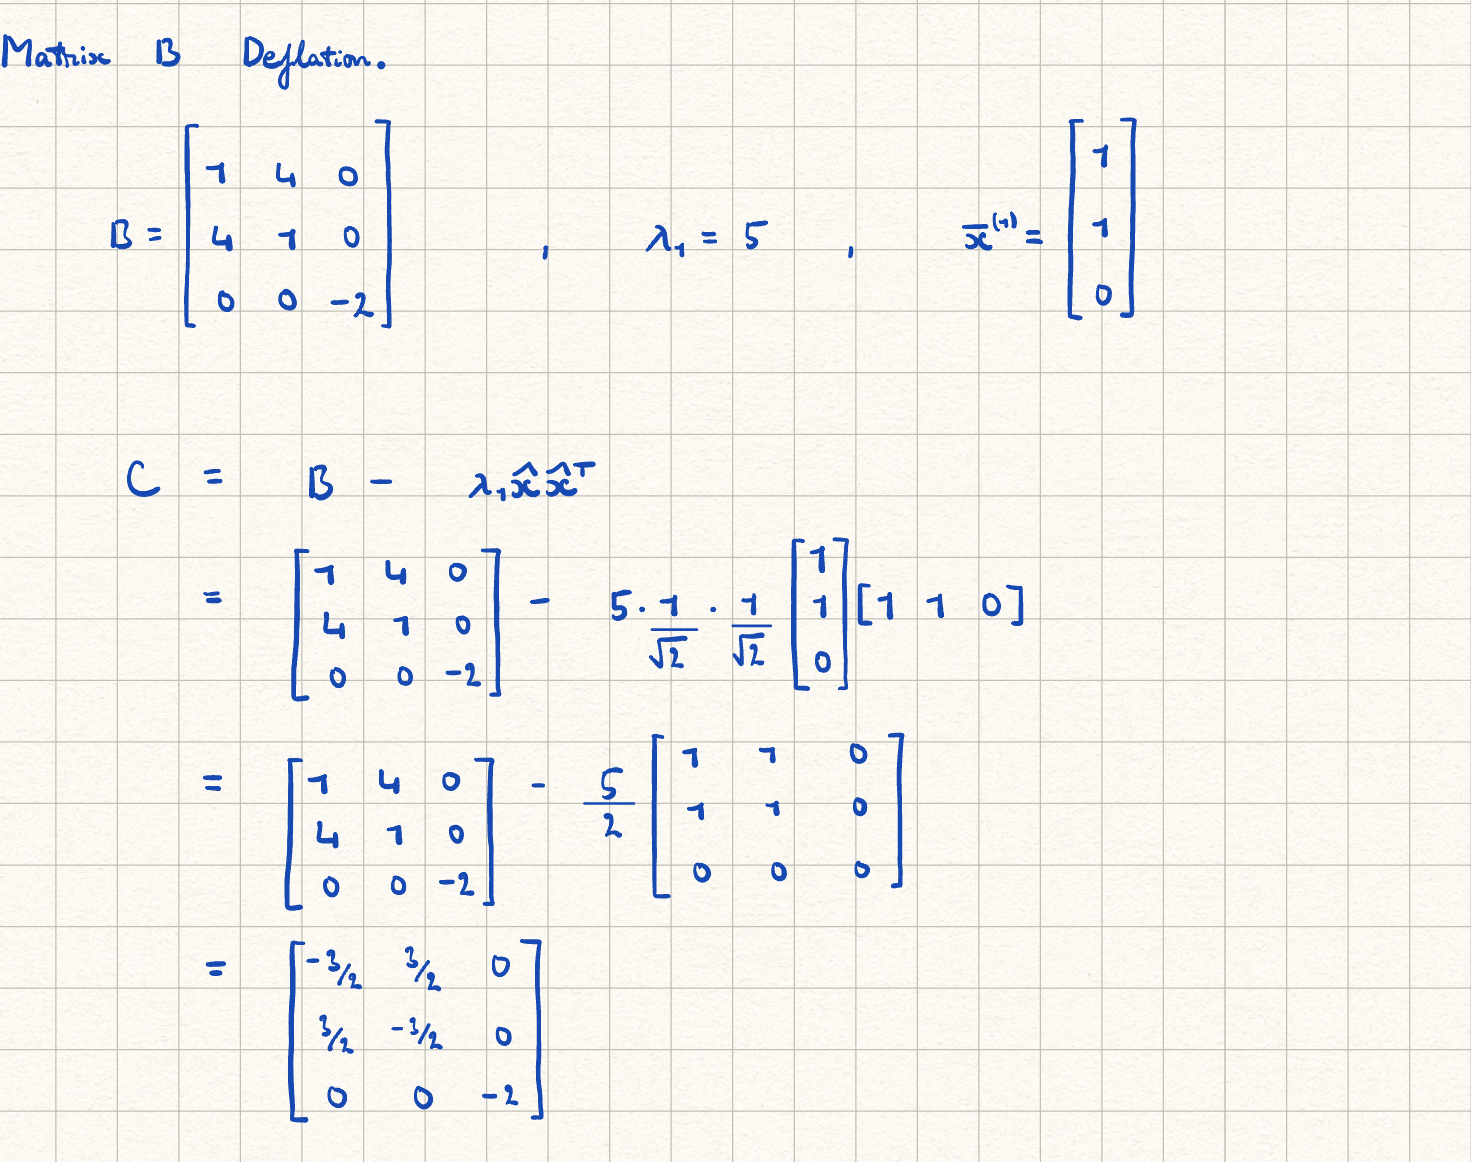 Matrix B Deflation.
B = [1 4 0; 4 1 0; 0 0 -2] , λ₁ = 5 , x̅⁽¹⁾ = [1; 1; 0]
C = B - λ₁x̂x̂ᵀ
= [1 4 0; 4 1 0; 0 0 -2] - 5 · 1/√2 · 1/√2 [1; 1; 0] [1 1 0]
= [1 4 0; 4 1 0; 0 0 -2] - 5/2 [1 1 0; 1 1 0; 0 0 0]
= [-3/2 3/2 0; 3/2 -3/2 0; 0 0 -2]